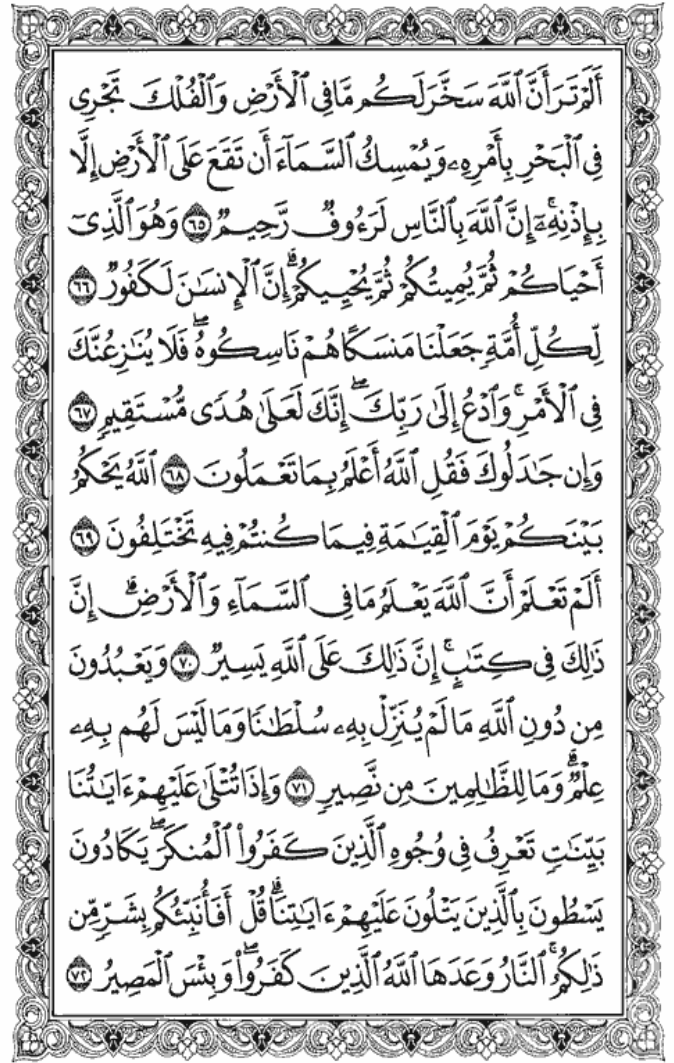 أَلَمْ تَرَ أَنَّ ٱللَّهَ سَخَّرَ لَكُم مَّا فِى ٱلْأَرْضِ وَٱلْفُلْكَ تَجْرِى
فِى ٱلْبَحْرِ بِأَمْرِهِۦ وَيُمْسِكُ ٱلسَّمَآءَ أَن تَقَعَ عَلَى ٱلْأَرْضِ إِلَّا
بِإِذْنِهِۦٓ ۚ إِنَّ ٱللَّهَ بِٱلنَّاسِ لَرَءُوفٌ رَّحِيمٌ ٦٥ وَهُوَ ٱلَّذِىٓ
أَحْيَاكُمْ ثُمَّ يُمِيتُكُمْ ثُمَّ يُحْيِيكُمْ ۗ إِنَّ ٱلْإِنسَٰنَ لَكَفُورٌ ٦٦
لِّكُلِّ أُمَّةٍ جَعَلْنَا مَنسَكًا هُمْ نَاسِكُوهُ ۖ فَلَا يُنَٰزِعُنَّكَ
فِى ٱلْأَمْرِ ۚ وَٱدْعُ إِلَىٰ رَبِّكَ ۖ إِنَّكَ لَعَلَىٰ هُدًى مُّسْتَقِيمٍ ٦٧
وَإِن جَٰدَلُوكَ فَقُلِ ٱللَّهُ أَعْلَمُ بِمَا تَعْمَلُونَ ٦٨ ٱللَّهُ يَحْكُمُ
بَيْنَكُمْ يَوْمَ ٱلْقِيَٰمَةِ فِيمَا كُنتُمْ فِيهِ تَخْتَلِفُونَ ٦٩
أَلَمْ تَعْلَمْ أَنَّ ٱللَّهَ يَعْلَمُ مَا فِى ٱلسَّمَآءِ وَٱلْأَرْضِ ۗ إِنَّ
ذَٰلِكَ فِى كِتَٰبٍ ۚ إِنَّ ذَٰلِكَ عَلَى ٱللَّهِ يَسِيرٌ ٧٠ وَيَعْبُدُونَ
مِن دُونِ ٱللَّهِ مَا لَمْ يُنَزِّلْ بِهِۦ سُلْطَٰنًا وَمَا لَيْسَ لَهُم بِهِۦ
عِلْمٌ ۗ وَمَا لِلظَّٰلِمِينَ مِن نَّصِيرٍ ٧١ وَإِذَا تُتْلَىٰ عَلَيْهِمْ ءَايَٰتُنَا
بَيِّنَٰتٍ تَعْرِفُ فِى وُجُوهِ ٱلَّذِينَ كَفَرُوا۟ ٱلْمُنكَرَ ۖ يَكَادُونَ
يَسْطُونَ بِٱلَّذِينَ يَتْلُونَ عَلَيْهِمْ ءَايَٰتِنَا ۗ قُلْ أَفَأُنَبِّئُكُم بِشَرٍّ مِّن
ذَٰلِكُمُ ۗ ٱلنَّارُ وَعَدَهَا ٱللَّهُ ٱلَّذِينَ كَفَرُوا۟ ۖ وَبِئْسَ ٱلْمَصِيرُ ٧٢